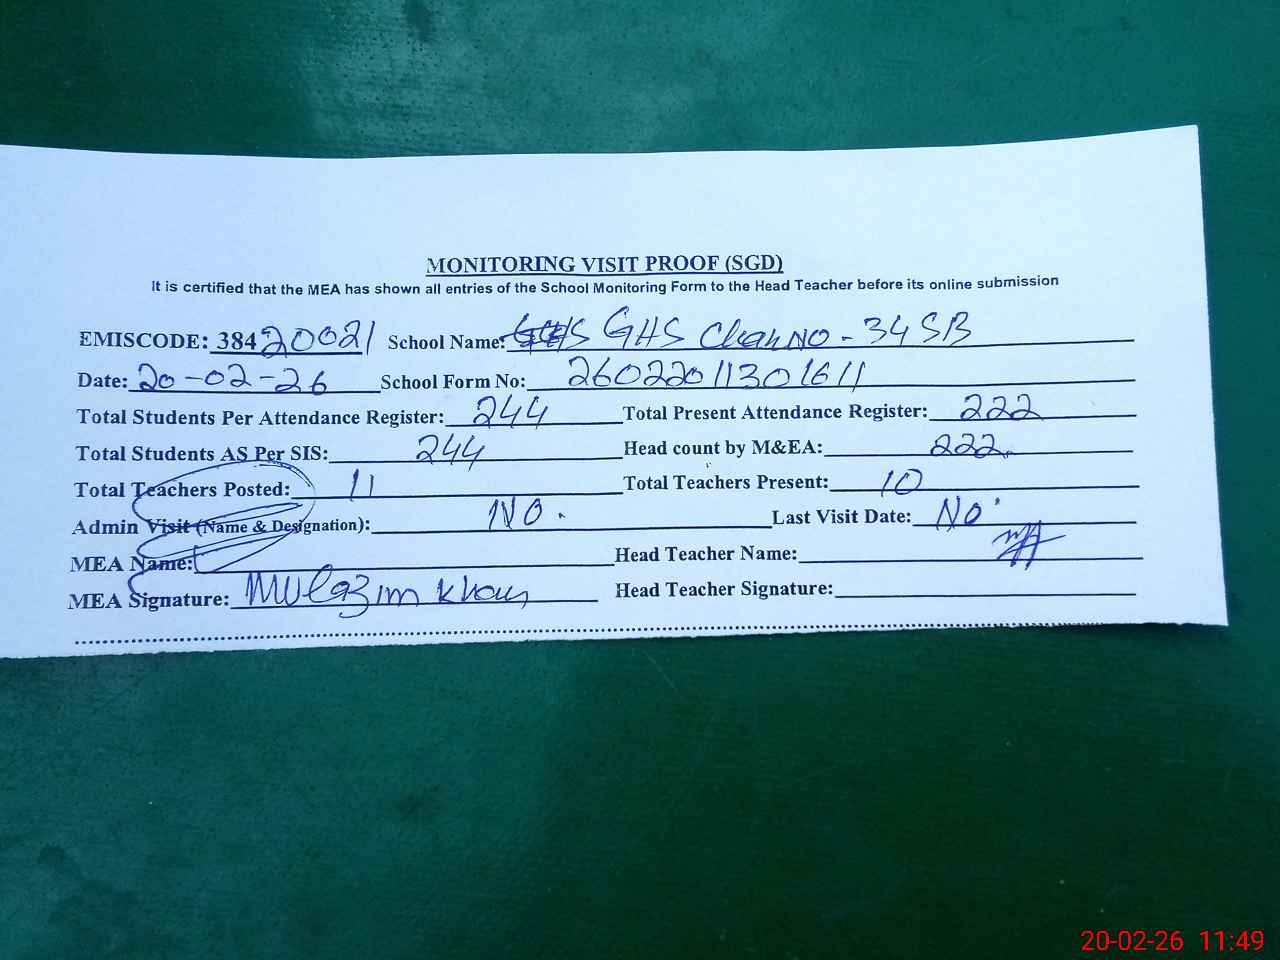 MONITORING VISIT PROOF (SGD)
It is certified that the MEA has shown all entries of the School Monitoring Form to the Head Teacher before its online submission
EMISCODE: 38420021 School Name: GHS Chak NO - 34 SB
Date: 20-02-26 School Form No: 26022011301611
Total Students Per Attendance Register: 244 Total Present Attendance Register: 222
Total Students AS Per SIS: 244 Head count by M&EA: 222
Total Teachers Posted: 11 Total Teachers Present: 10
Admin Visit (Name & Designation): NO. Last Visit Date: NO
MEA Name: Head Teacher Name:
MEA Signature: Mulazim Khan Head Teacher Signature:
20-02-26 11:49